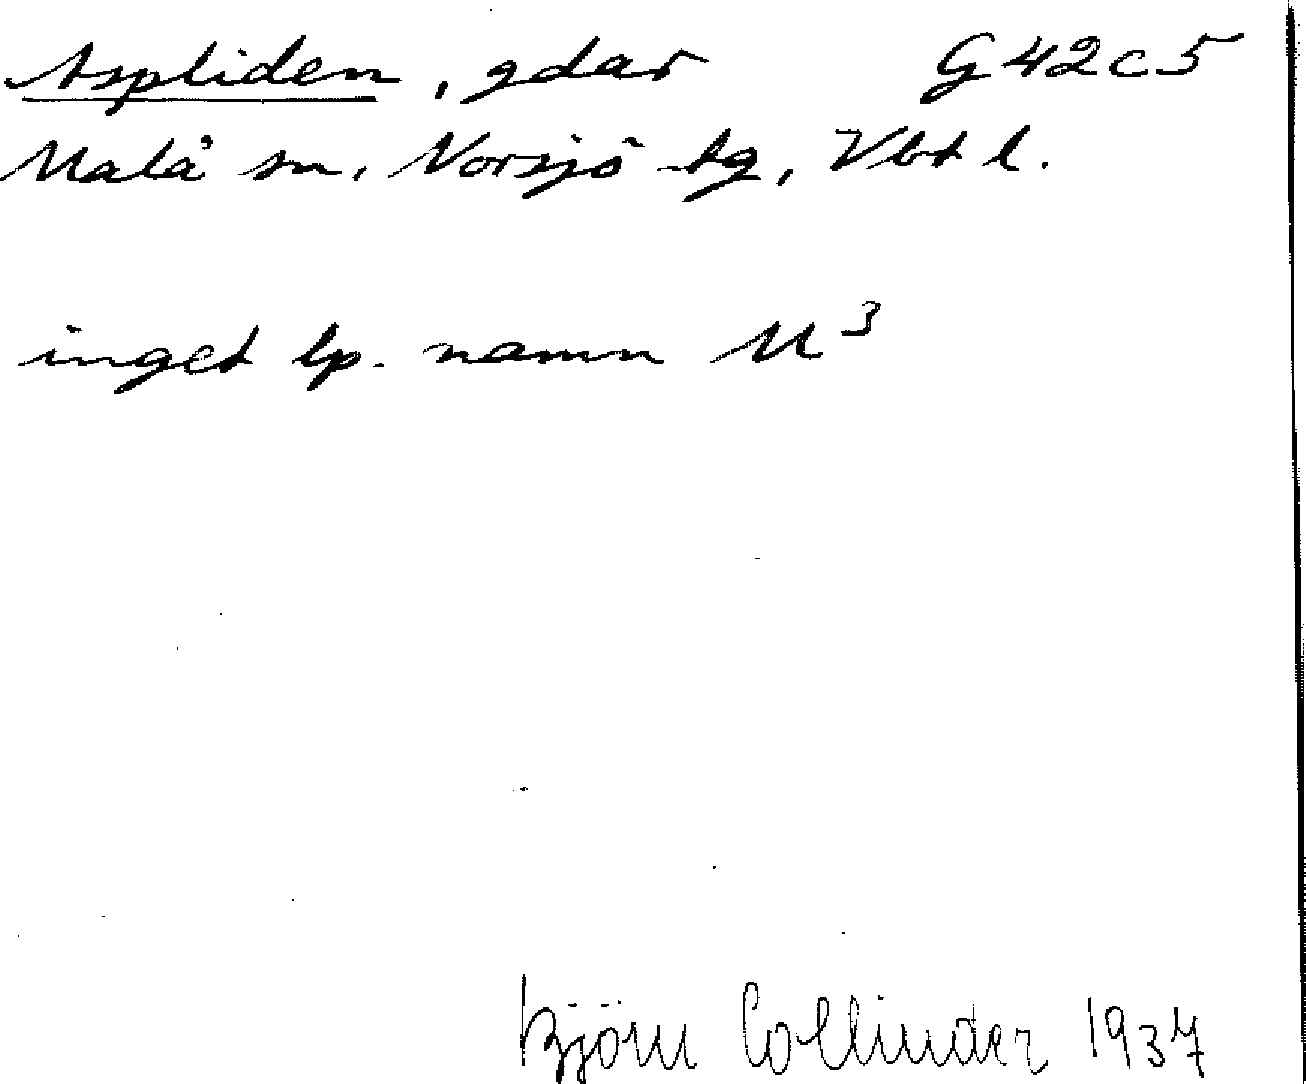 Aspliden, gdar G42c5
Malå sn, Norsjö tg, Vbt l.
inget lp. namn M³
Björn Collinder 1937